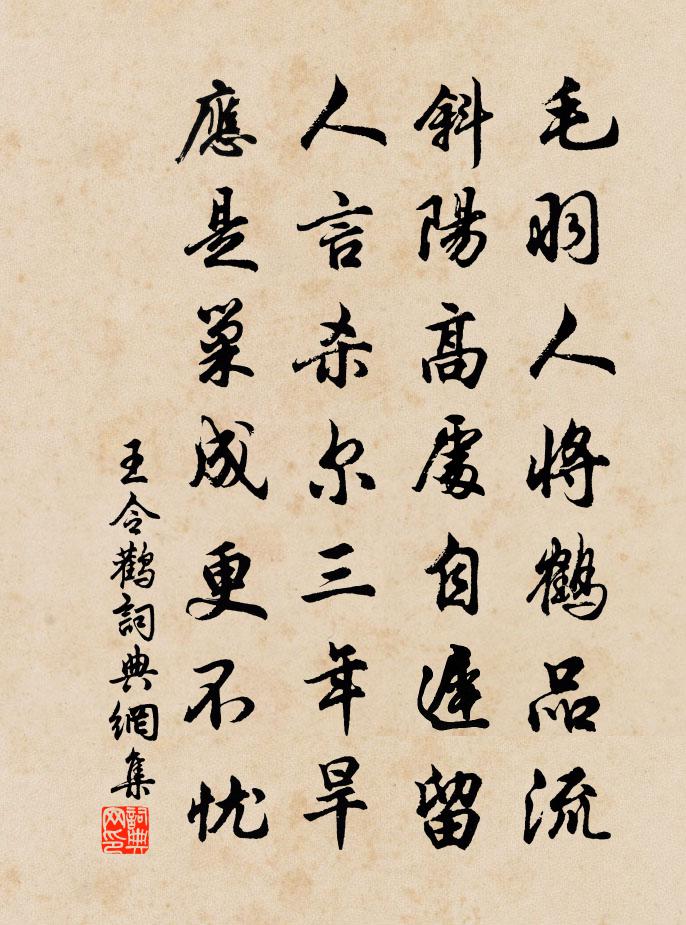 毛羽人將鶴品流
斜陽高處自遲留
人言杀尔三年旱
應是巢成更不忧
王令鸛詞典網集
詞典網印